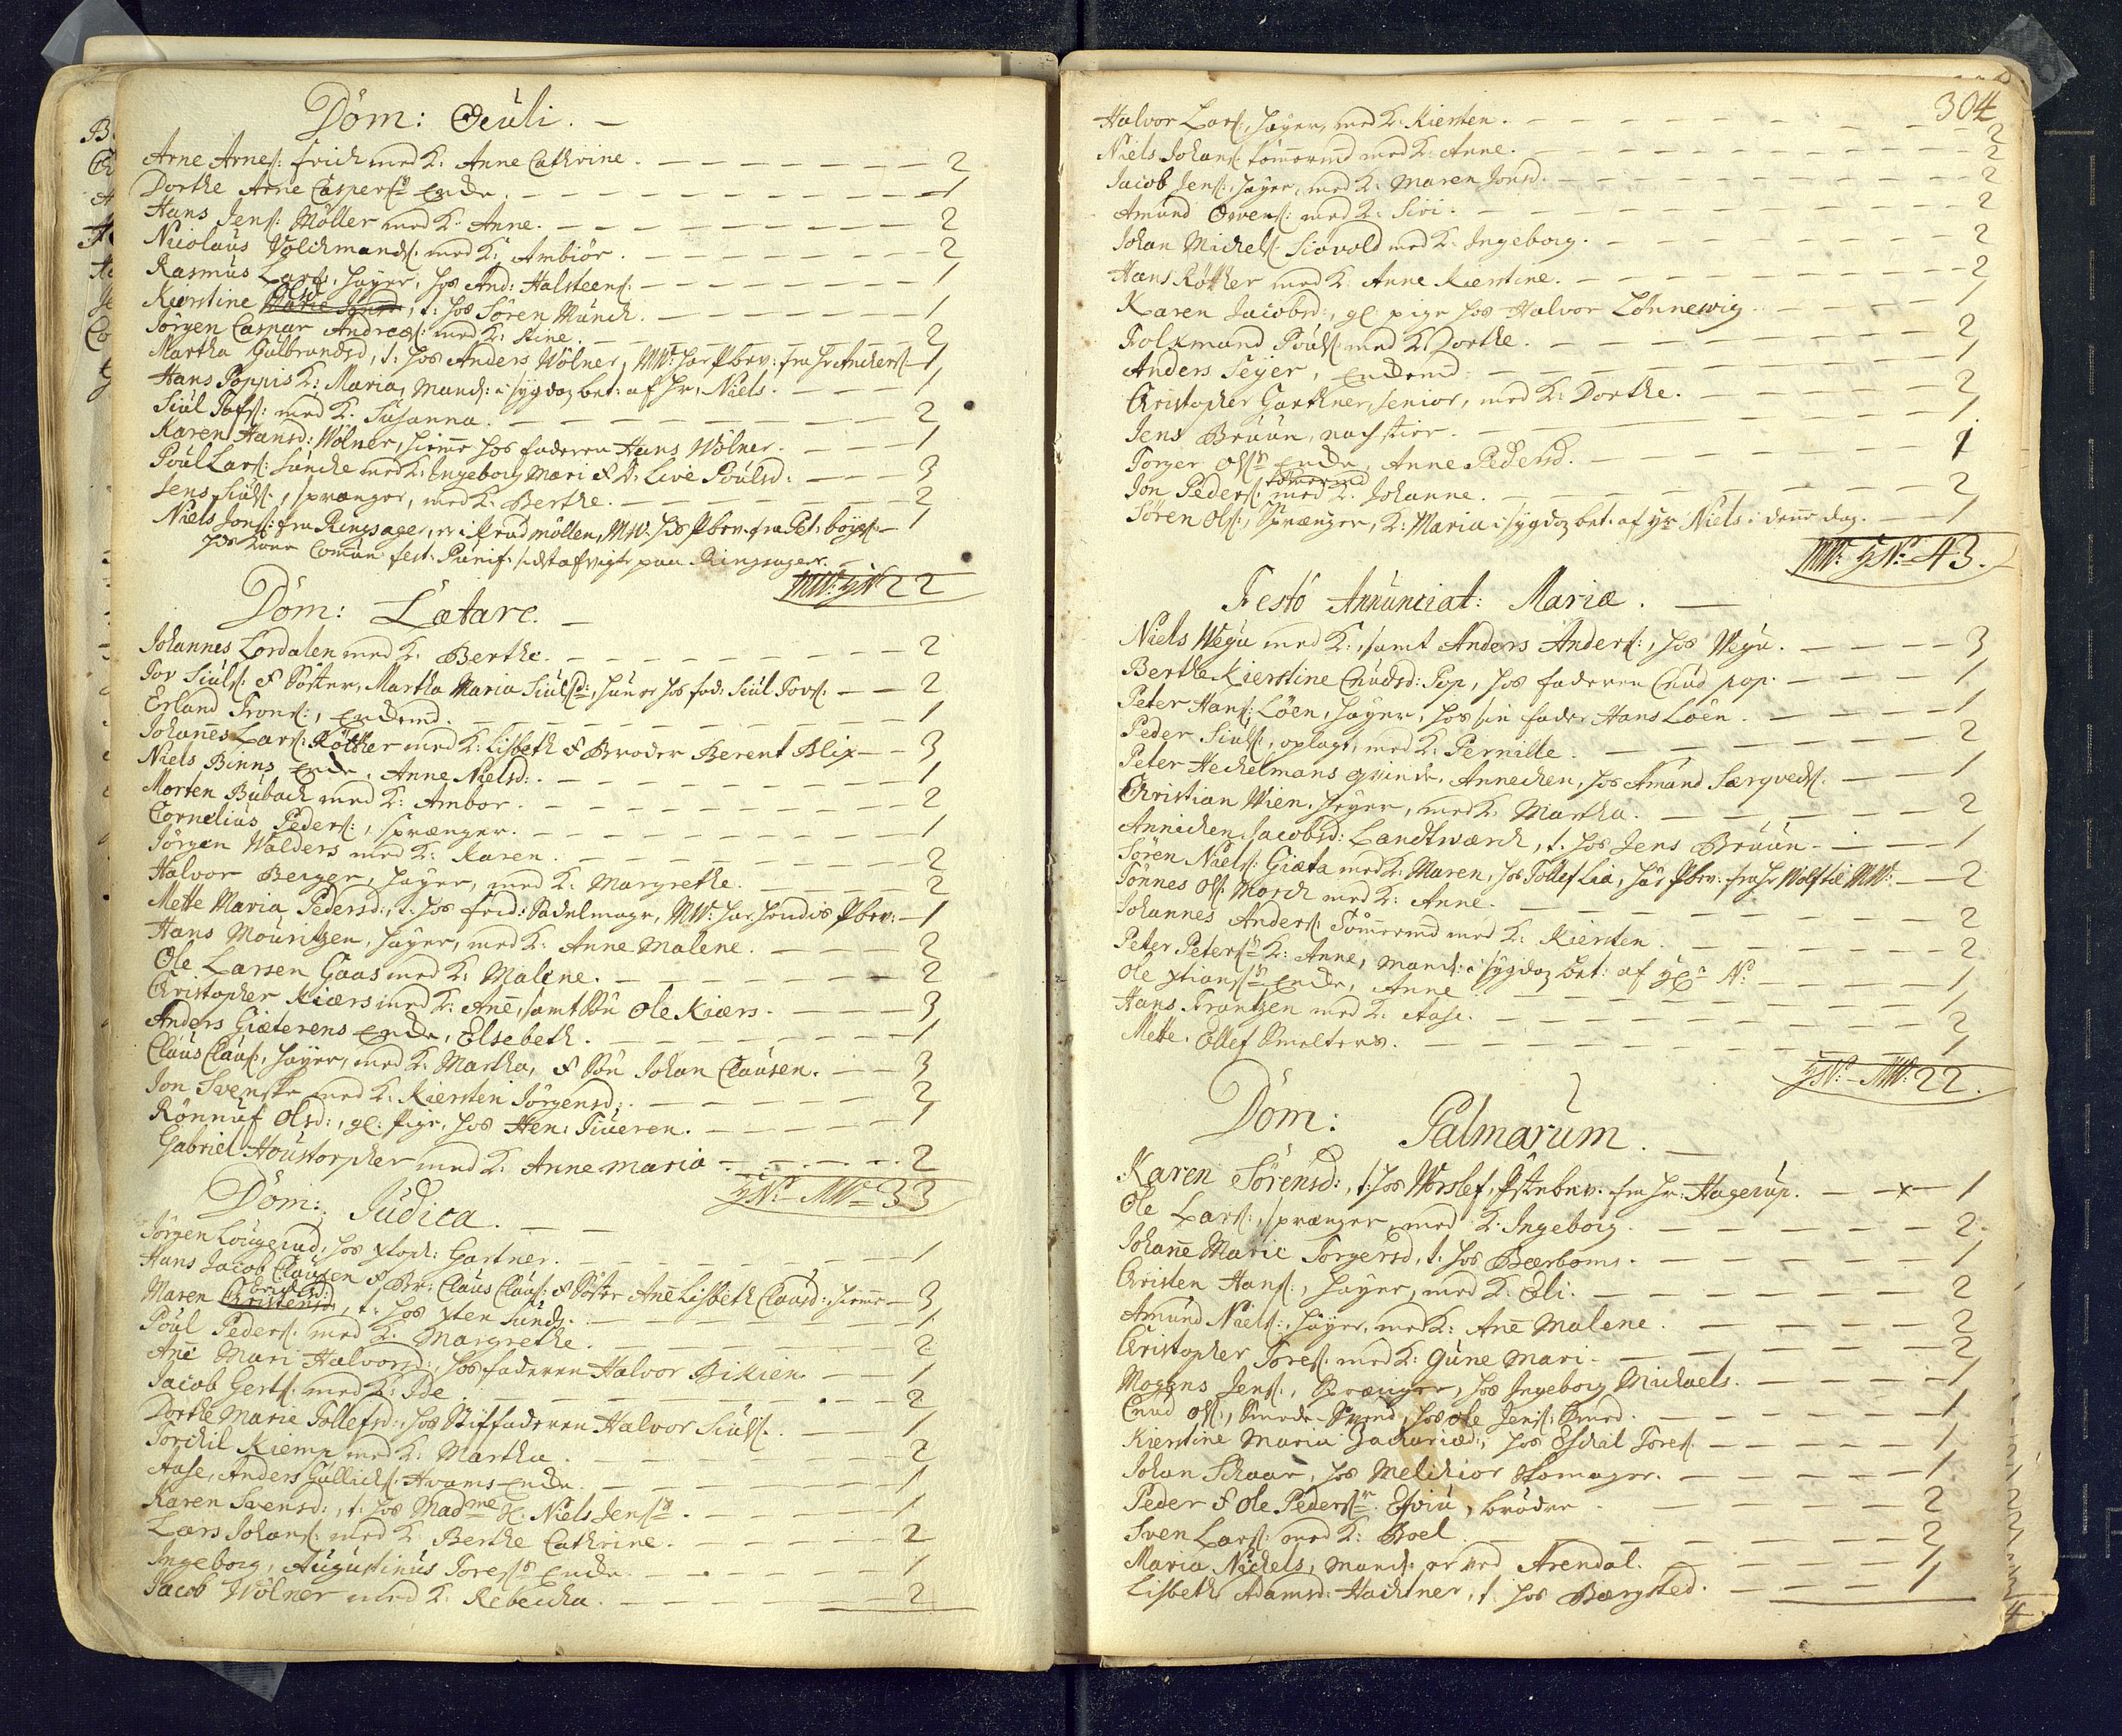 Dom: Oculi. —
Arne Arnes: frich med K: Anne Cathrine. — 2
Dorthe Arne Caspers: Enche. — 1
Hans Jens: Möller med K: Anne. — 2
Nicolaus Volchmands: med K: Ambiör. — 2
Rasmus Lars: Hayer, hos And: Halsteens: — 1
Kierstine Olsd, t: hos Sören Münch. — 1
Jörgen Caspar Andreæs: med K: Stine. — 2
Martha Gulbrandsd, t: hos Anders Wölner, MW: har Pbrv: fra Hr Anchers: — 1
Hans Poppis K: Maria, Mands: i sygdoz bet: af Hr: Niels. — 1
Siul Tofs: med K: Susanna. — 2
Karen Hansd: Wölner, hiemme hos faderen Hans Wölner. — 1
Poul Lars: Sünche med K: Ingeborg Mari & D: Live Poulsd: — 3
Jens Siuls:, sprænger, med K: Berthe. — 2
Niels Jons: fra Ringsager, er i Krudmöllen, MW: har Pbrv. fra Pet: böyes: — 1
har været Comun: fest: Purif: sidst afvigte paa Ringsager.
MW: HN: 22
Dom: Lætare. —
Johannes Lordalen med K: Berthe. — 2
Tov Siuls: & Söster, Martha Maria Siulsd:, hun er hos fad: Siul Tovs: — 2
Erland Trons:, Enchemd. — 1
Johannes Lars: Röther med K: Lisbeth & Broder Berent Blix — 3
Niels Binns Enche, Anne Nielsd: — 1
Morten Bubach med K: Ambor. — 2
Cornelius Peders:, sprænger. — 1
Jörgen Walders med K: Karen. — 2
Halvor Berger, Hayer, med K: Margrethe. — 2
Mette Maria Pedersd:, t: hos frid: Sadelmager, MW: har hendis Pbrv: — 1
Hans Mouritzen, Hayer, med K: Anne Malene. — 2
Ole Larsen Gaas med K: Malene. — 2
Christopher Kiærs med K: Ane, samt Sön Ole Kiærs. — 3
Anders Giæterens Enche, Elsebeth. — 1
Claus Claus:, Hayer, med K: Martha, & Sön Johan Clausen. — 3
Jon Svenske med K: Kiersten Jörgensd: — 2
Rönnuf Olsd:, gl: Pige, hos Hen: Siueren. — 1
Gabriel Houstorpher med K: Anne Maria — 2
HN: MW: 33
Dom: Judica. —
Jörgen Lougerud, hos Xtoph: Gartner. — 1
Hans Jacob Clausen & Br: Claus Claus: & Söster Ane Lisbeth Clausd:, hiemme — 3
Maren Christensd:, t: hos Xten Sunds: — 1
Poul Peders: med K: Margrethe. — 2
Ane Mari Halvorsd:, hos faderen Halvor Bikien — 1
Jacob Gerts: med K: Ide. — 2
Dorthe Marie Tollefsd:, hos Stiffaderen Halvor Siuls: — 1
Torchil Kiemp med K: Martha. — 2
Aase, Anders Gullichs: Hvams Enche — 1
Karen Svensd:, t: hos Madme Niels Jens: — 1
Lars Johans: med K: Berthe Cathrine. — 2
Ingeborg, Augustinus Tores: Enche. — 1
Jacob Wölner med K: Rebecha. — 2
304
Halvor Lars:, Hayer, med K: Kiersten. — 2
Niels Johans: Tömermd med K: Anne. — 2
Jacob Jens:, Hayer, med K: Maren Jonsd. — 2
Amund Ovens: med K: Siri. — 2
Johan Michels: Siovold med K: Ingeborg. — 2
Hans Röther med K: Anne Kierstine. — 2
Karen Jacobsd:, gl pige hos Halvor Lönnewig — 1
Folkmand Pouls: med K: Dorthe. — 2
Anders Seyer, Enchemd — 1
Christopher Garthner, senior, med K: Dorthe. — 2
Jens Bruun, nachstier. — 1
Torger Ols: Enche, Anne Pedersd. — 1
Jon Peders: Tömermd med K: Johanne. — 2
Sören Ols:, Sprænger, K: Maria i sygdoz bet: af Hr Niels i denne dag. — 1
MW: HN: 43.
Festo Annunciat: Mariæ. —
Niels Wegu med K:, samt Anders Anders:, hos Wegu. — 3
Berthe Kierstine Cnudsd: Pop, hos faderen Cnud pop. — 1
Peter Hans: Löen, Hayer, hos sin fader Hans Löen. — 1
Peder Siuls:, oplagt, med K: Pernille. — 2
Peter Hechelmans qvinde, Annechen, hos Amund Særqveds: — 1
Christian Wien, Hayer, med K: Martha. — 2
Annichen Jacobsd: Landtwærch, t: hos Jens Bruun. — 1
Sören Niels: Giæta med K: Maren, hos Tollef Lia, har Pbrv: fra Hr Wolf til MW: — 2
Jonnes Ols: Morch med K: Anne. — 2
Johannes Anders: Tömermd med K: Kiersten. — 2
Peter Peters: K: Anne, Mands: i sygdoz bet: af Hr N: — 1
Ole Xtians: Enche, Anne — 1
Hans Frantzen med K: Aase. — 2
Mette, Ollef Smelters. — 1
HN: MW: 22.
Dom: Palmarum. —
Karen Sörensd:, t: hos Worslef, Pstebrv. fra Hr: Hagerup. — x — 1
Ole Lars:, sprænger, med K: Ingeborg. — 2
Johane Marie Torgersd, t: hos Beerboms. — 1
Christen Hans:, Hayer, med K: Eli. — 2
Amund Niels:, Hayer, med K: Ane Malene. — 2
Christopher Tores: med K: Gune Mari. — 2
Mogens Jens:, Sprænger, hos Ingeborg Michaels. — 1
Cnud Ols:, Smede-Svend, hos Ole Jens: Smed. — 1
Kierstine Maria Zachariæd:, hos Eschil Tores: — 1
Johan Schaar, hos Melchior Skomager. — 1
Peder & Ole Peders: Esviu, brödre. — 2
Sven Lars: med K: Boel. — 2
Maria Nichels, Mands: er ved Arendal. — 1
Lisbeth Adamsd: Hachtner, t: hos Bærgsted. — 1